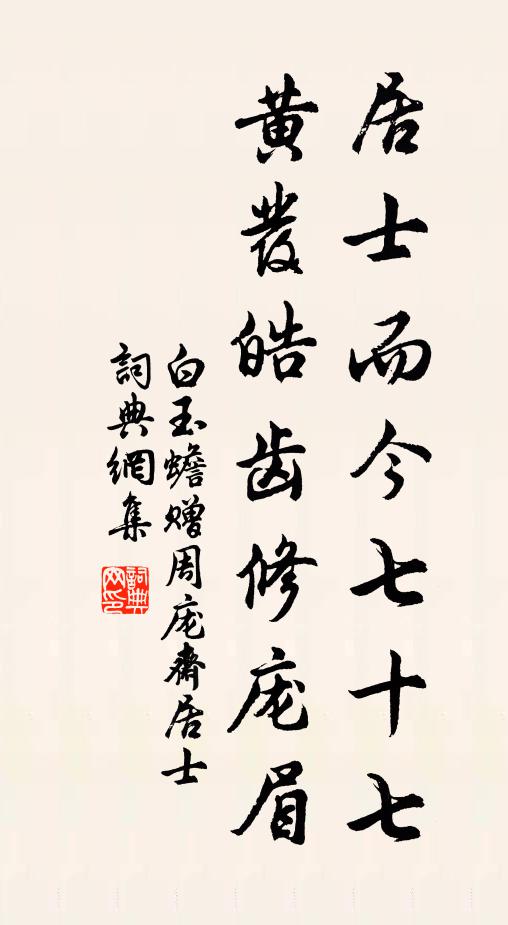 居士而今七十七
黄發皓齿修庞眉
白玉蟾赠周庞齋居士
詞典網集
詞典网印